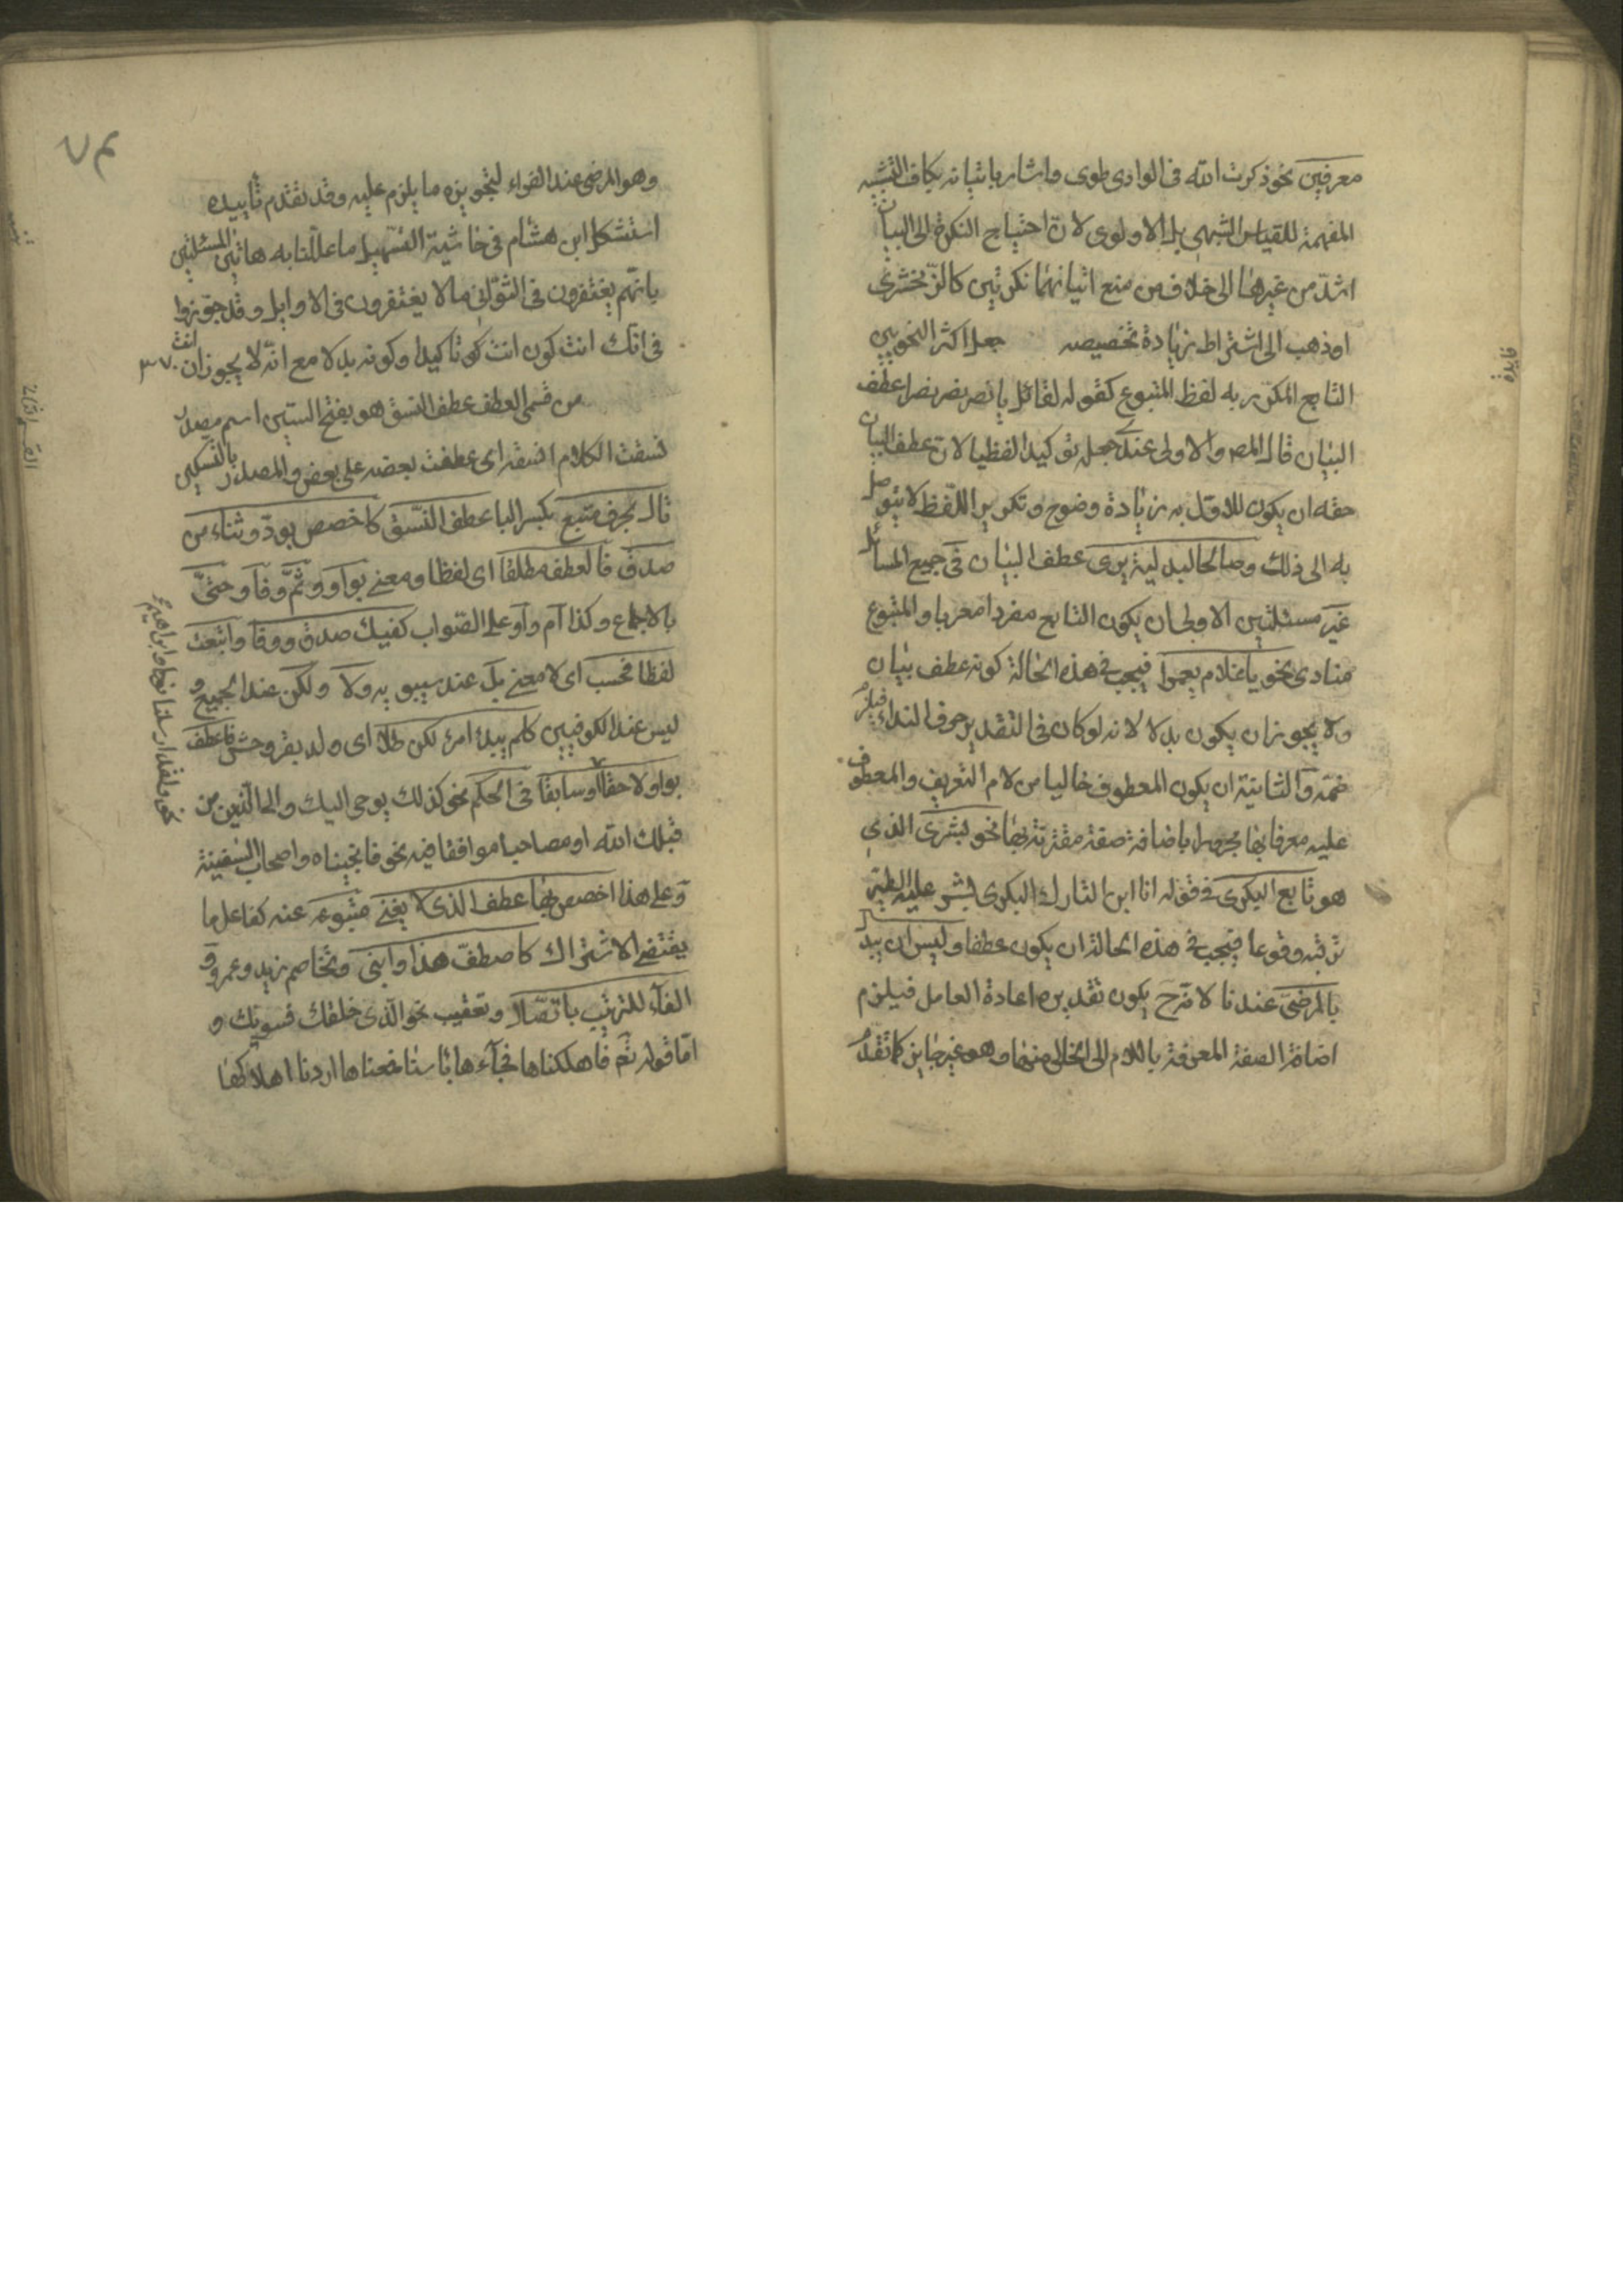 معرفين نحو ذكرت الله في الوادي طوى واشار باتيانه بكاف التشبيه
المفهمة للقياس الشبهي بل الاولوى لان احتياج النكرة الى البيان
اشد من غيرها الى خلاف من منع اتيانهما نكرتين كالزمخشري
او ذهب الى اشتراط زيادة تخصيصه جعل اكثر النحويين
التابع المكرر به لفظ المتبوع كقوله لقائل يا نصر نصر نصرا عطف
البيان قال المص والاولى عندي جعله توكيدا لفظيا لان عطف البيان
حقه ان يكون للاول به زيادة وضوح وتكرير اللفظ لا يتوصل
به الى ذلك وصالحا لبدلية يرى عطف البيان في جميع المسائل
غير مسئلتين الاولى ان يكون التابع مفردا معربا والمتبوع
منادى نحو يا غلام يعمرا فيجب في هذه الحالة كونه عطف بيان
ولا يجوز ان يكون بدلا لانه لو كان في التقدير حرف النداء فيلزم
ضمه والثانية ان يكون المعطوف خاليا من لام التعريف والمعطوف
عليه معرفا بها مجرورا باضافة صفة مقترنة بها نحو بشر الذي
هو تابع البكرى في قوله انا ابن التارك البكرى بشر عليه الطير
ترقبه وقوعا فيجب في هذه الحالة ان يكون عطفا وليس ان يبدل
بالمرضي عندنا لانه ح يكون تقديره اعادة العامل فيلزم
اضافة الصفة المعرفة باللام الى الخالي منها وهو غير جايز كما تقدم
فايدة
وهو المرضي عند الفراء لتجويزه ما يلزم عليه وقد تقدم تأييده
استشكل ابن هشام في حاشية التسهيل ما عللنا به هاتين المسئلتين
بانهم يغتفرون في الثواني ما لا يغتفرون في الاوايل وقد جوزوا
في انك انت كون انت تاكيدا وكونه بدلا مع انه لا يجوز ان انت
من قسمي العطف عطف النسق هو بفتح السين اسم مصدر
نسقت الكلام انسقه اى عطفت بعضه على بعض والمصدر بالتسكين
تال بحرف متبع بكسر البا عطف النسق كاخصص بود وثناء من
صدق فالعطف مطلقا اى لفظا ومعنى بواو وثم وفا وحتى
بالاجماع وكذا ام واو على الصواب كفيك صدق ووفا واتبعت
لفظا فحسب اى لا معنى بل عند سيبويه ولا ولكن عند الجميع و
ليس عند الكوفيين كلم يبد امرؤ لكن طلا اى ولد بقر وحش فاعطف
بواو لاحقا او سابقا في الحكم نحو كذلك يوحى اليك والى الذين من
قبلك الله او مصاحبا موافقا فيه نحو فانجيناه واصحاب السفينة
وعلى هذا اخصص بها عطف الذي لا يغني متبوعه عنه كفاعل ما
يقتضي الاشتراك كاصطف هذا وابني وتخاصم زيد وعمرو و
الفاء للترتيب باتصال وتعقيب نحو الذي خلقك فسويك و
اما قوله تعم فاهلكناها فجاءها باسنا فمعناها اردنا اهلاكها
نحو ولقد ارسلنا نوحا وابراهيم